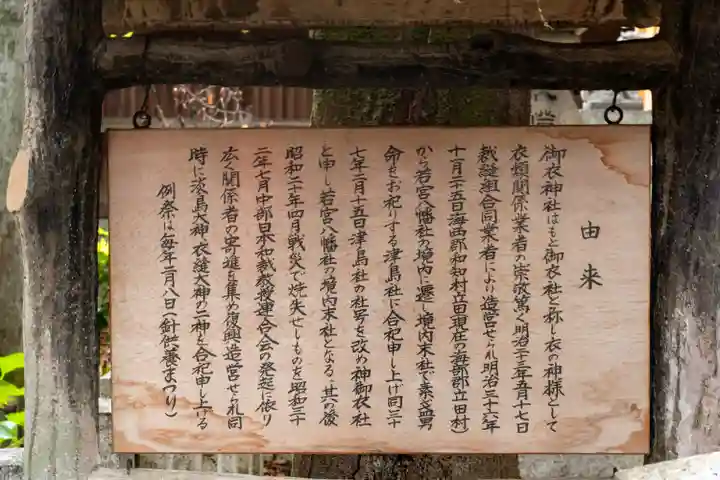 由来
御衣神社はもと御衣社と称し衣の神様として
衣類関係業者の崇敬篤く明治二十三年五月十七日
裁縫組合同業者により造営せられ明治三十六年
十一月二十五日海西郡和知村立田(現在の海部郡立田村)
から若宮八幡社の境内に遷し境内末社で素盞男
命をお祀りする津島社に合祀申し上げ同三十
七年二月十五日津島社の社号を改め神御衣社
と申し若宮八幡社の境内末社となる、其の後
昭和二十年四月戦災で焼失せしものを昭和三十
二年七月中部日本和裁教授連合会の発起に依り
広く関係者の寄進を集め復興造営せられ同
時に淡島大神・衣縫大神の二神を合祀申し上げる
例祭は毎年二月八日(針供養まつり)